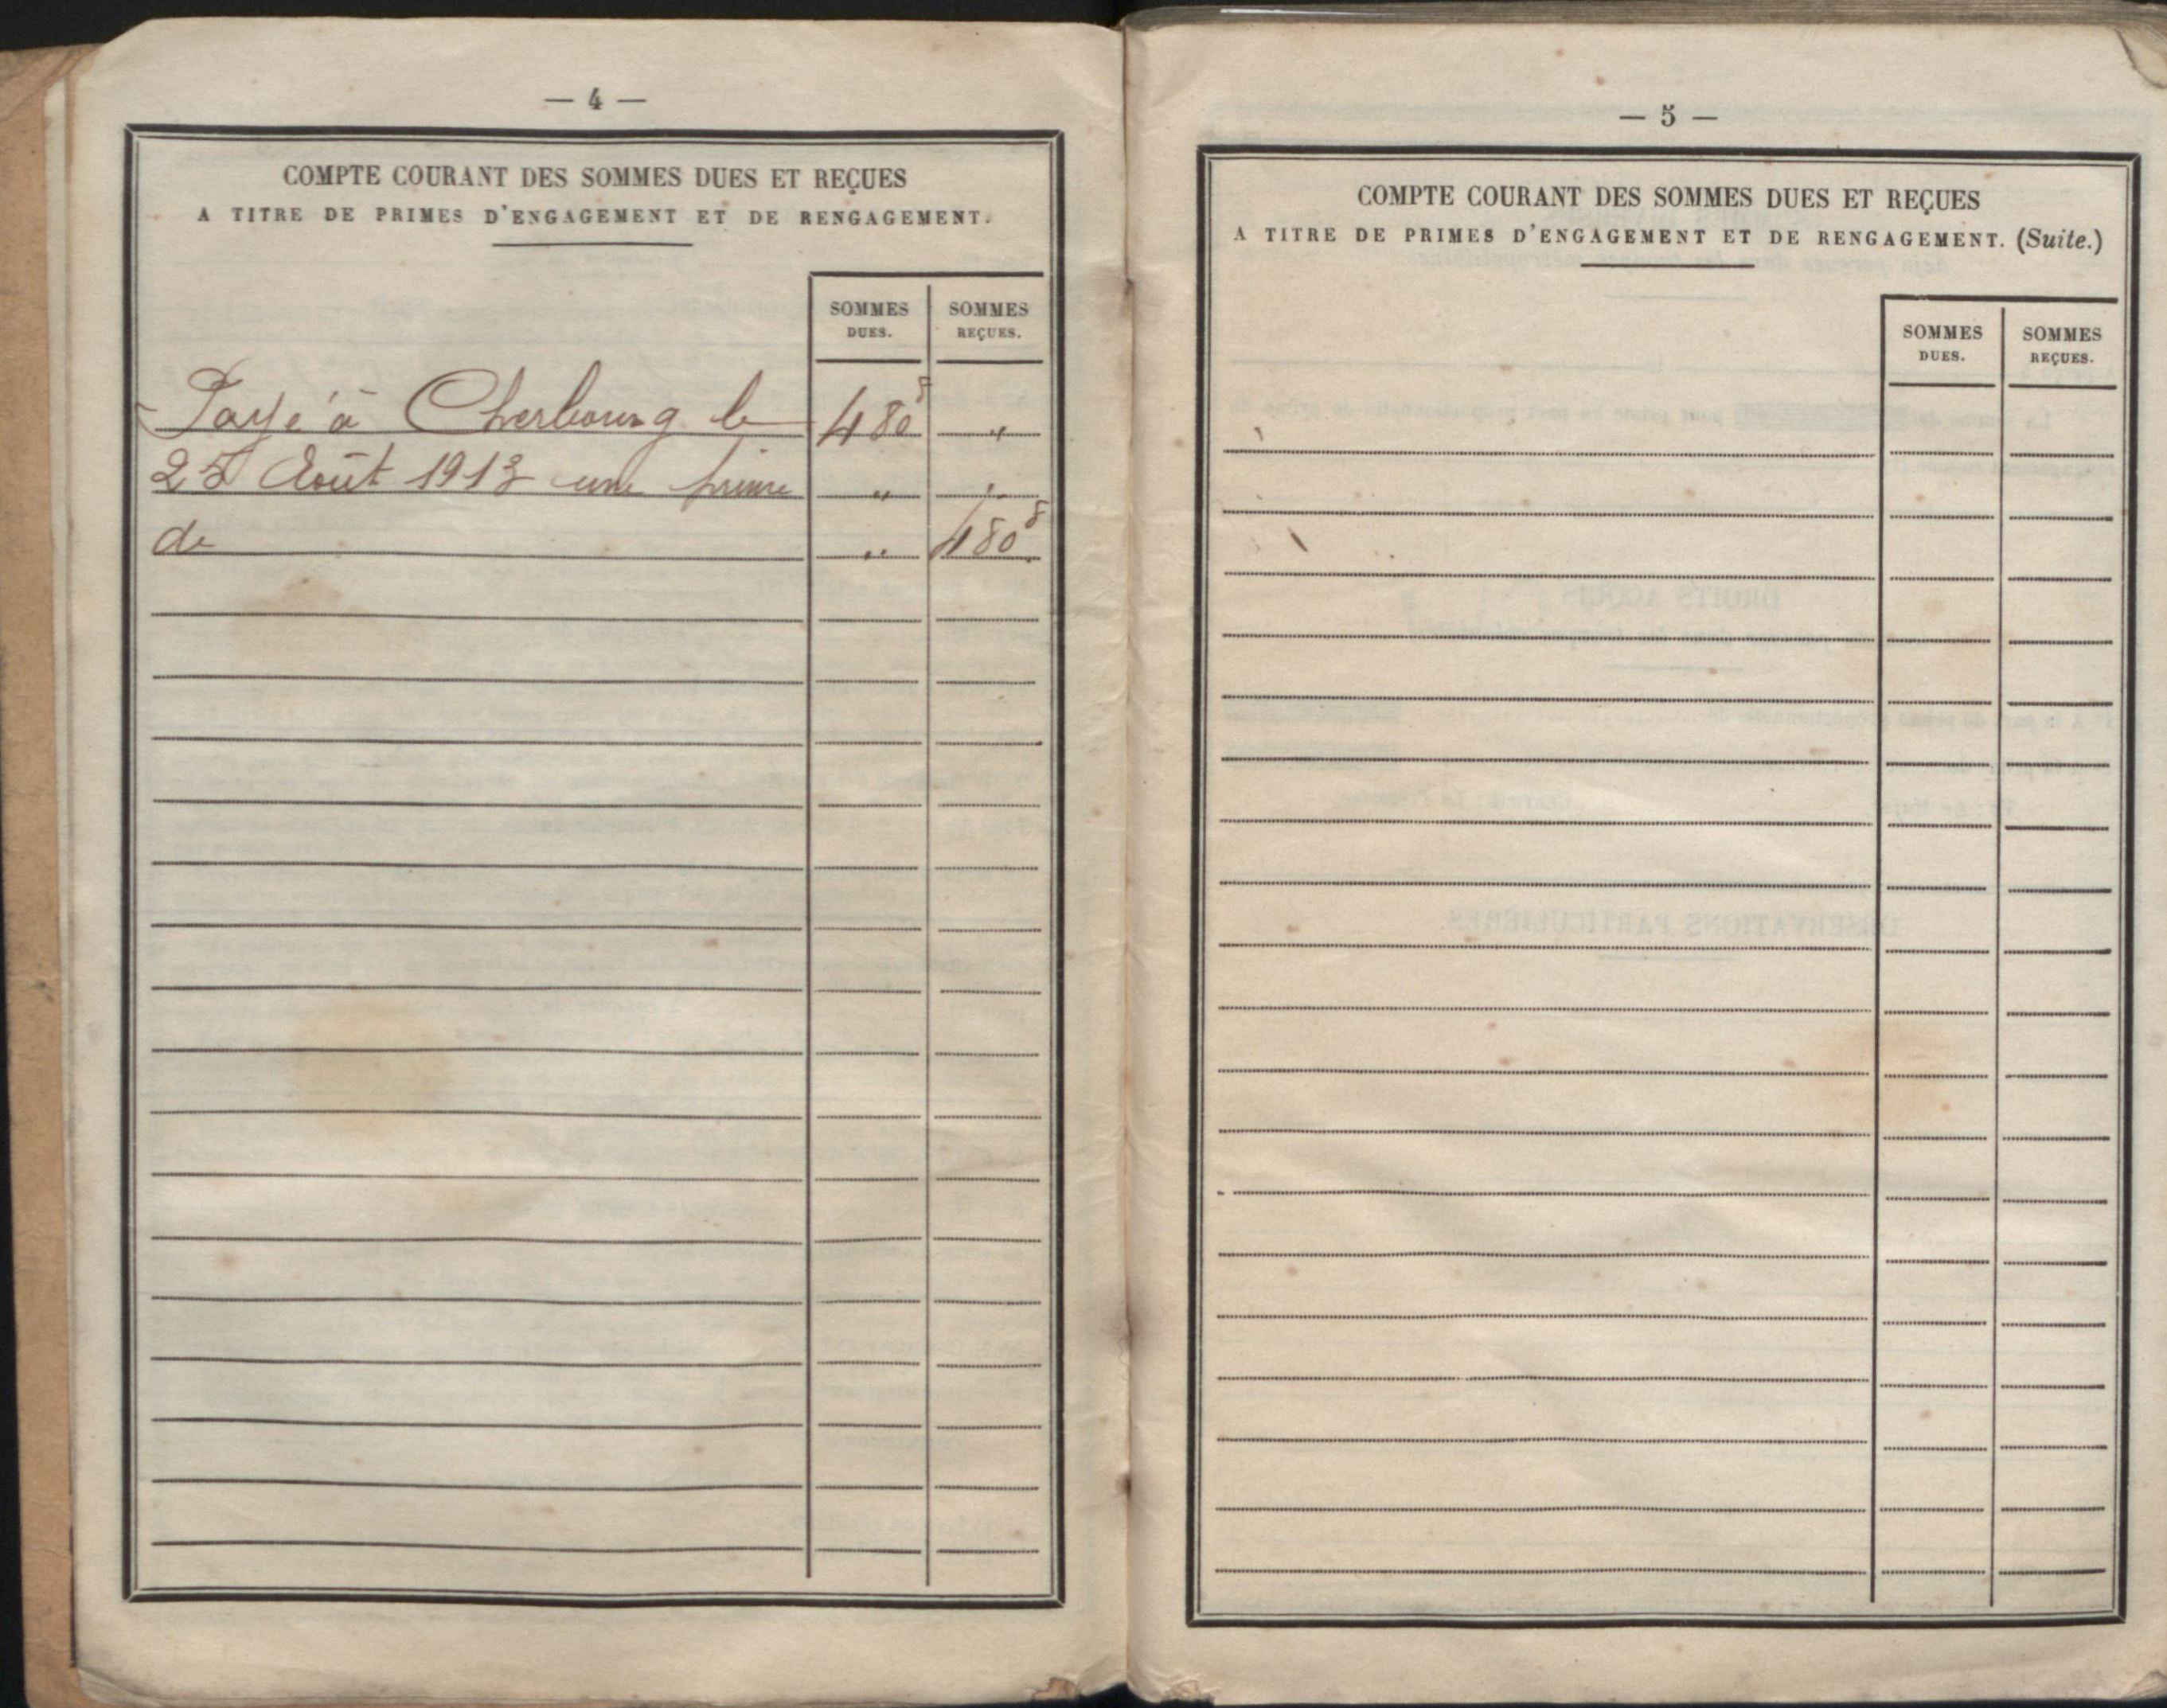 — 4 —
COMPTE COURANT DES SOMMES DUES ET REÇUES
A TITRE DE PRIMES D'ENGAGEMENT ET DE RENGAGEMENT.
SOMMES DUES. SOMMES REÇUES.
Payé à Cherbourg le 480f "
25 Août 1913 une prime " "
de " 480f
— 5 —
COMPTE COURANT DES SOMMES DUES ET REÇUES
A TITRE DE PRIMES D'ENGAGEMENT ET DE RENGAGEMENT. (Suite.)
SOMMES DUES. SOMMES REÇUES.